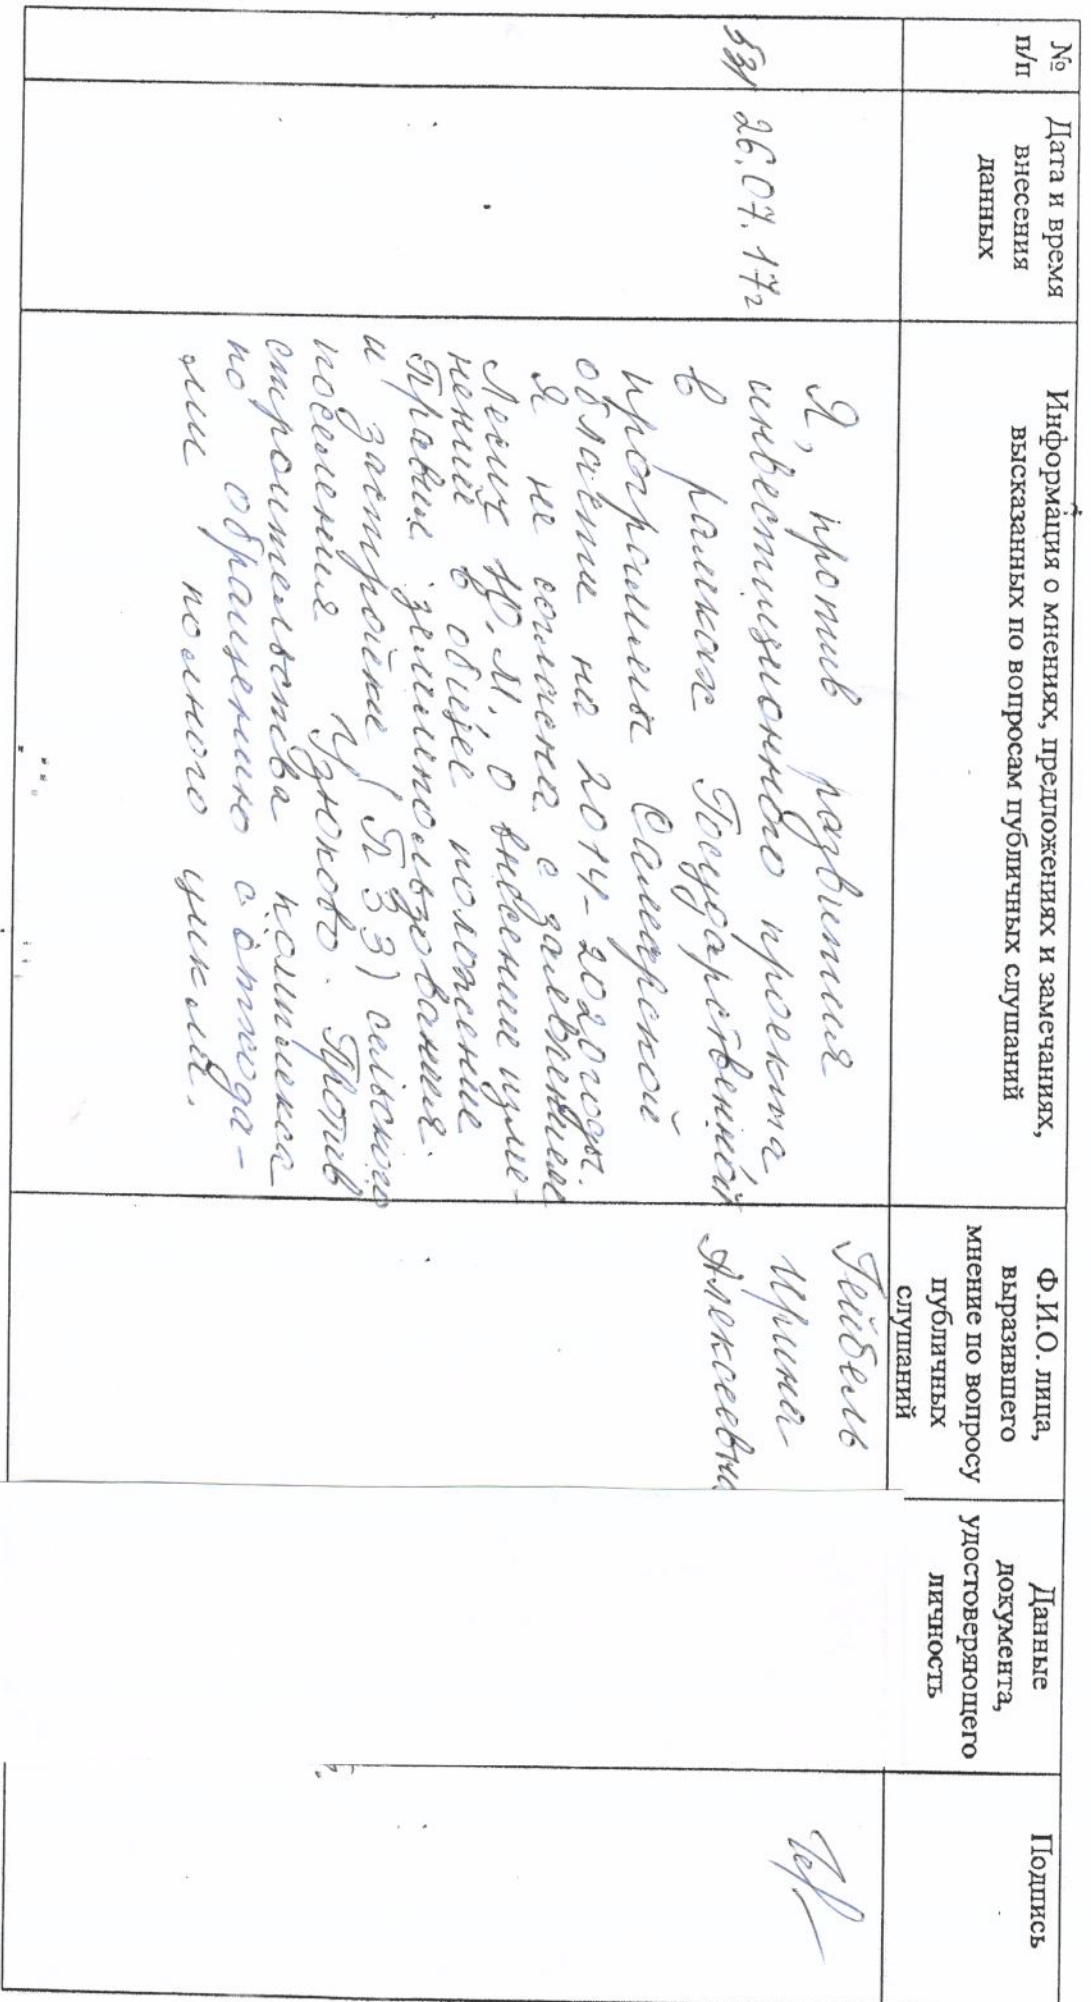 №
п/п
Дата и время
внесения
данных
Информация о мнениях, предложениях и замечаниях,
высказанных по вопросам публичных слушаний
Ф.И.О. лица,
выразившего
мнение по вопросу
публичных
слушаний
Данные
документа,
удостоверяющего
личность
Подпись
26.07.17г
Я, против развития
инвестиционного проекта
в рамках Государственной
программы Самарской
области на 2014-2020 годы.
Я не согласна с заявлением
Ю.М. о внесении изме-
нений в общее положение
Правил землепользования
и застройки (ПЗЗ) сельского
поселения Узюково. Против
строительства комплекса
по обращению с отхода-
ми полного цикла.
Гейбель
Ирина
Алексеевна